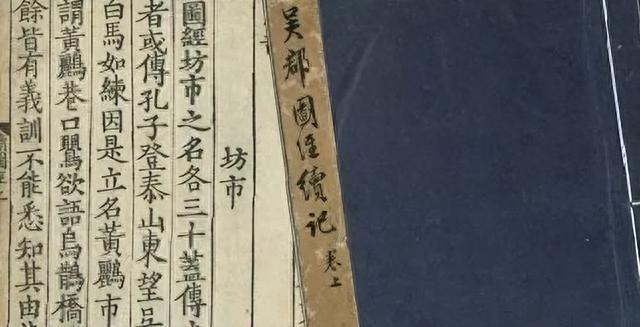 吳郡圖經續記 卷上
坊市
圖經坊市之名各三十蓋傳
者或傳孔子登泰山東望吳
白馬如練因是立名黃鸝市
謂黃鸝巷口鸎欲語烏鵲橋
餘皆有義訓不能悉知其由